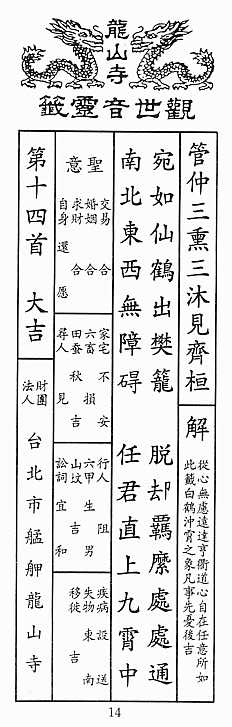 龍山寺
觀世音靈籤
管仲三熏三沐見齊桓
解
從心無慮遠達亨衢道心自在任意所如
此籤白鶴沖霄之象凡事先憂後吉
宛如仙鶴出樊籠 脫却羈縻處處通
南北東西無障碍 任君直上九霄中
聖意
交易 合
婚姻 合
求財 合
自身 還愿
家宅 不安
六畜 損
田蚕 秋吉
尋人 見
行人 阻
六甲 生男
山坟 吉
訟詞 宜和
疾病 設送
失物 東南
移徙 吉
第十四首 大吉
財團法人 台北市艋舺龍山寺
14